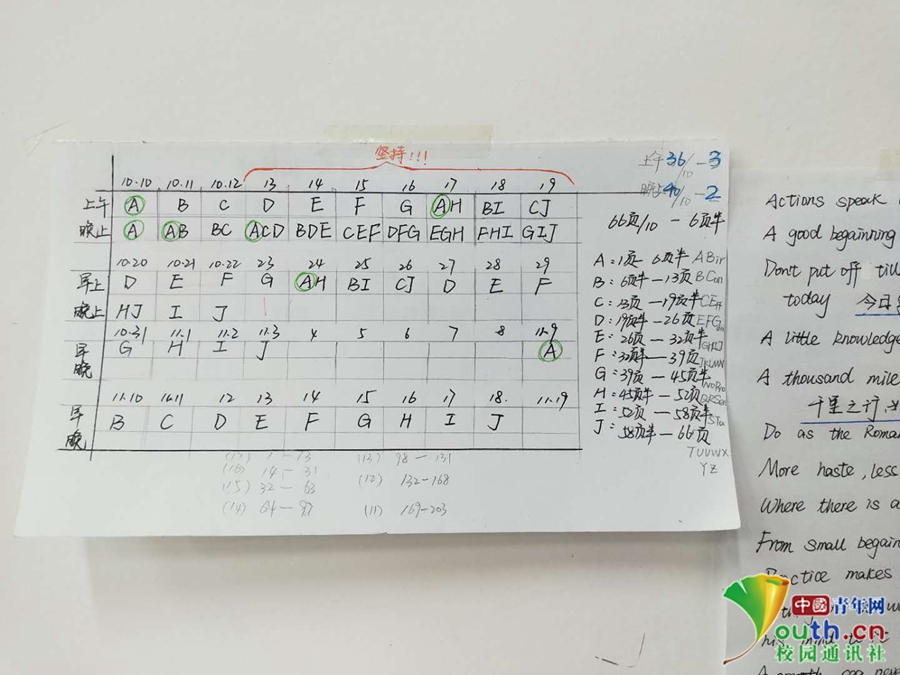 坚持!!!
10.10 10.11 10.12 13 14 15 16 17 18 19
上午 A B C D E F G AH BI CJ
晚上 A AB BC ACD BDE CEF DFG EGH FHI GIJ
10.20 10.21 10.22 23 24 25 26 27 28 29
早上 D E F G AH BI CJ D E F
晚上 HJ I J
10.31 11.1 11.2 11.3 4 5 6 7 8 11.9
早 G H I J A
晚
11.10 11.11 12 13 14 15 16 17 18. 11.19
早 B C D E F G H I J
晚
上午 36/10 - 3
晚上 40/10 - 2
66页/10 - 6页半
A:1页- 6页半
B:6页半-13页
C:13页-19页半
D:19页半-26页
E:26页-32页半
F:32页半-39页
G:39页-45页半
H:45页半-52页
I:52页-58页半
J:58页半-66页
TUVWX
YZ
(16) 14-31
(15) 32-63
(14) 64-97
(13) 98-131
(12) 132-168
(11) 169-203
Actions speak
A good begainning
Don't put off till
today 今日
A little knowledge
A thousand mile
千里之行,
Do as the Roman
More haste, less
Where there is a
From small begain
Practice makes
中國青年网
youth.cn
校园通讯社